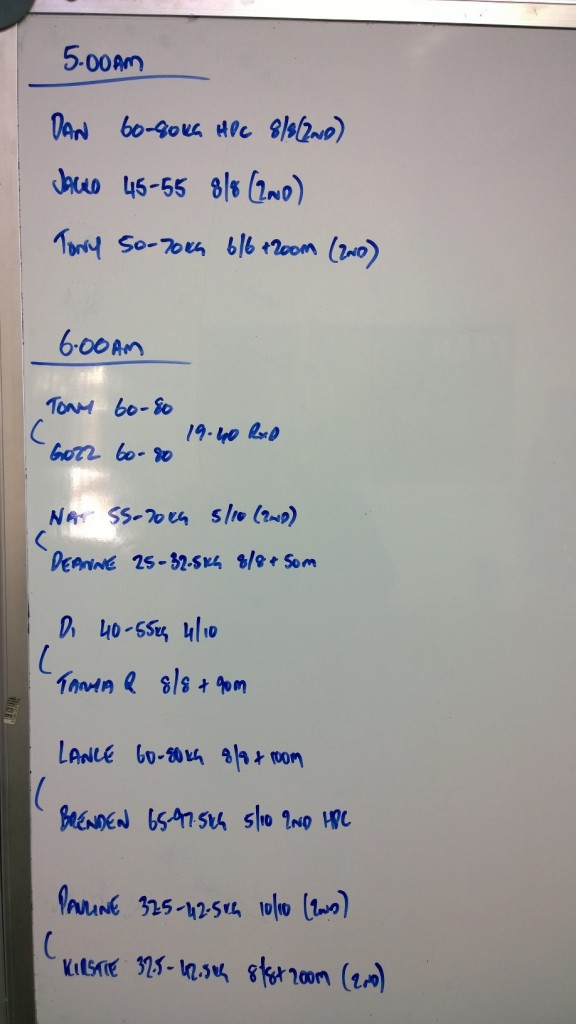 5.00AM
DAN 60-80KG HPC 8/8 (2ND)
JACKO 45-55 8/8 (2ND)
TONY 50-70KG 6/6 +200M (2ND)
6.00AM
TONY 60-80
19.40 RXD
GOZZ 60-80
NAT 55-70KG 5/10 (2ND)
DEANNE 25-32.5KG 8/8 + 50M
DI 40-55KG 4/10
TANYA R 8/8 + 90M
LANCE 60-80KG 8/8 + 100M
BRENDEN 65-97.5KG 5/10 2ND HPC
PAULINE 32.5-42.5KG 10/10 (2ND)
KIRSTIE 32.5-42.5KG 8/8+ 200M (2ND)